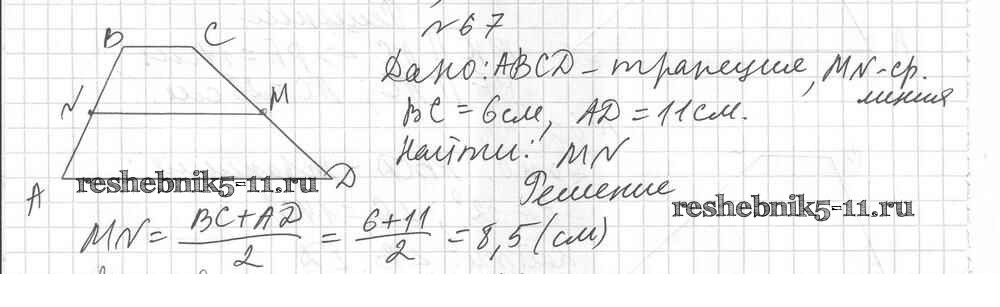 №67
B C
Дано: ABCD – трапеция, MN – ср. линия
N M
BC = 6см, AD = 11см.
Найти: MN
A D
reshebnik5-11.ru
Решение
reshebnik5-11.ru
MN = (BC + AD)/2 = (6 + 11)/2 = 8,5 (см)